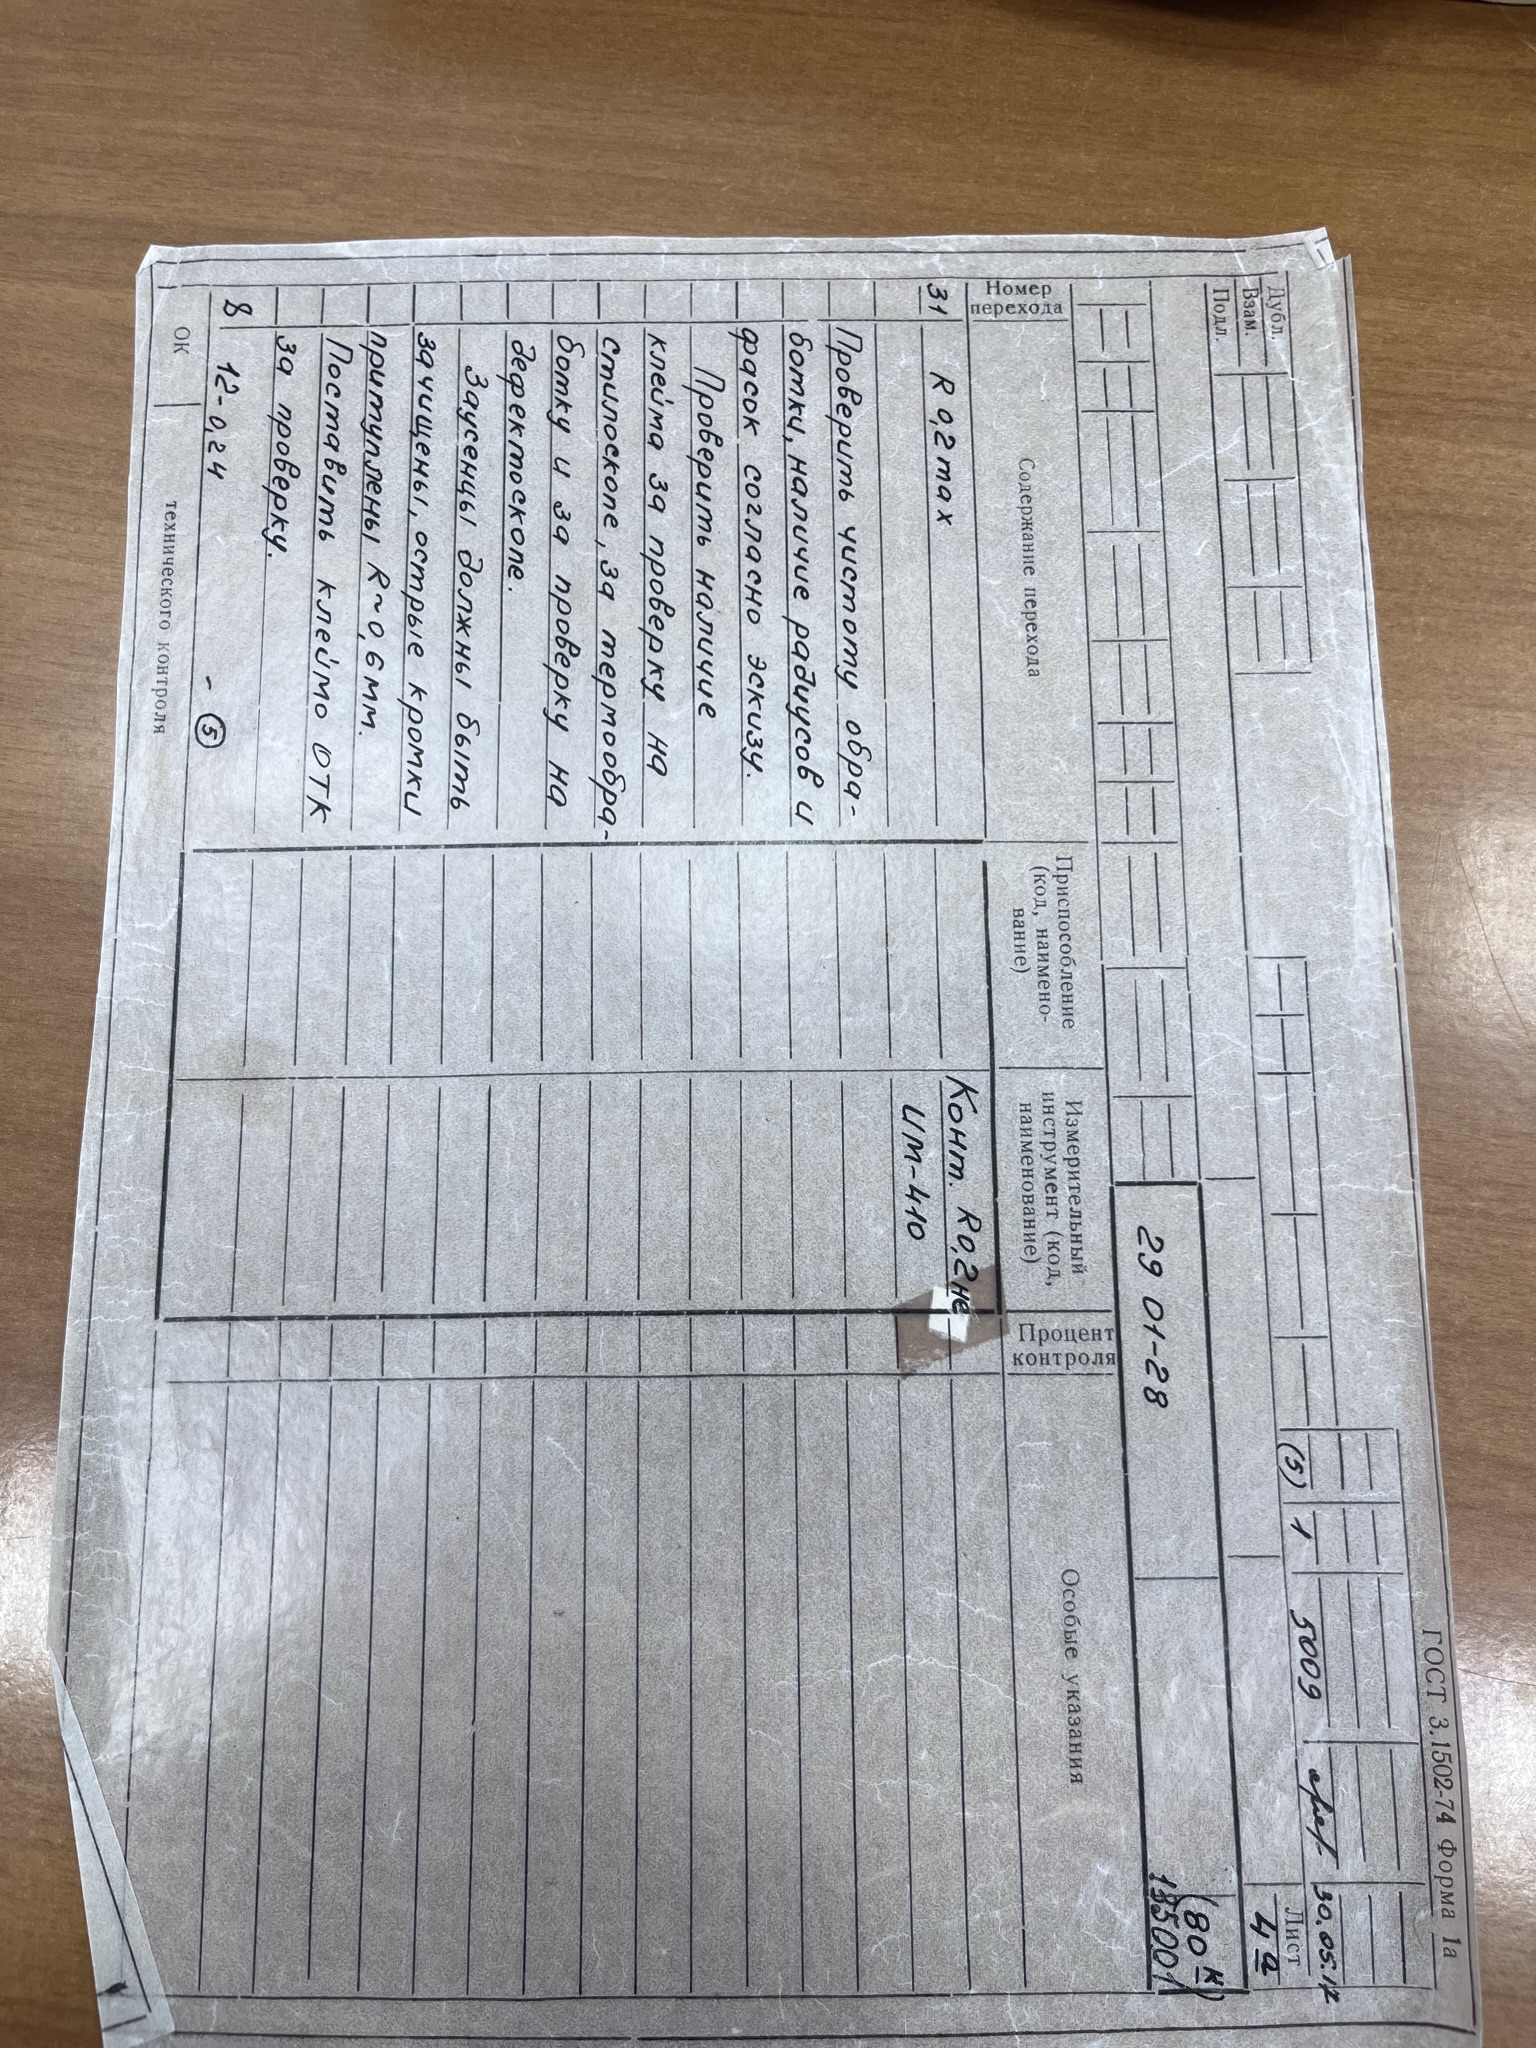 ГОСТ 3.1502-74 Форма 1а
(5) 1 5009 30.05.17
Дубл.
Взам.
Подл.
Лист
4а
29 01-28
(80к)
135001
Номер перехода
Содержание перехода
Приспособление (код, наимено-
вание)
Измерительный инструмент (код, наименование)
Процент контроля
Особые указания
31 R 0,2 max Конт. R0,2 не
ИМ-410
Проверить чистоту обра-
ботки, наличие радиусов и
фасок согласно эскизу.
Проверить наличие
клейма за проверку на
стилоскопе, за термообра-
ботку и за проверку на
дефектоскопе.
Заусенцы должны быть
зачищены, острые кромки
притуплены R~0,6мм.
Поставить клеймо ОТК
за проверку.
8 12-0,24 - 5
ОК
технического контроля